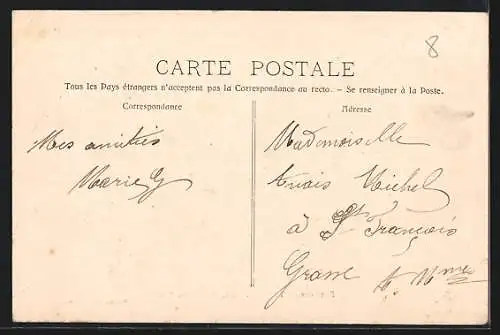 8
CARTE POSTALE
Tous les Pays étrangers n'acceptent pas la Correspondance au recto. - Se renseigner à la Poste.
Correspondance
Adresse
Mes amitiés
Marie G
Mademoiselle
Anaïs Michel
à St François
Grasse A. Mmes